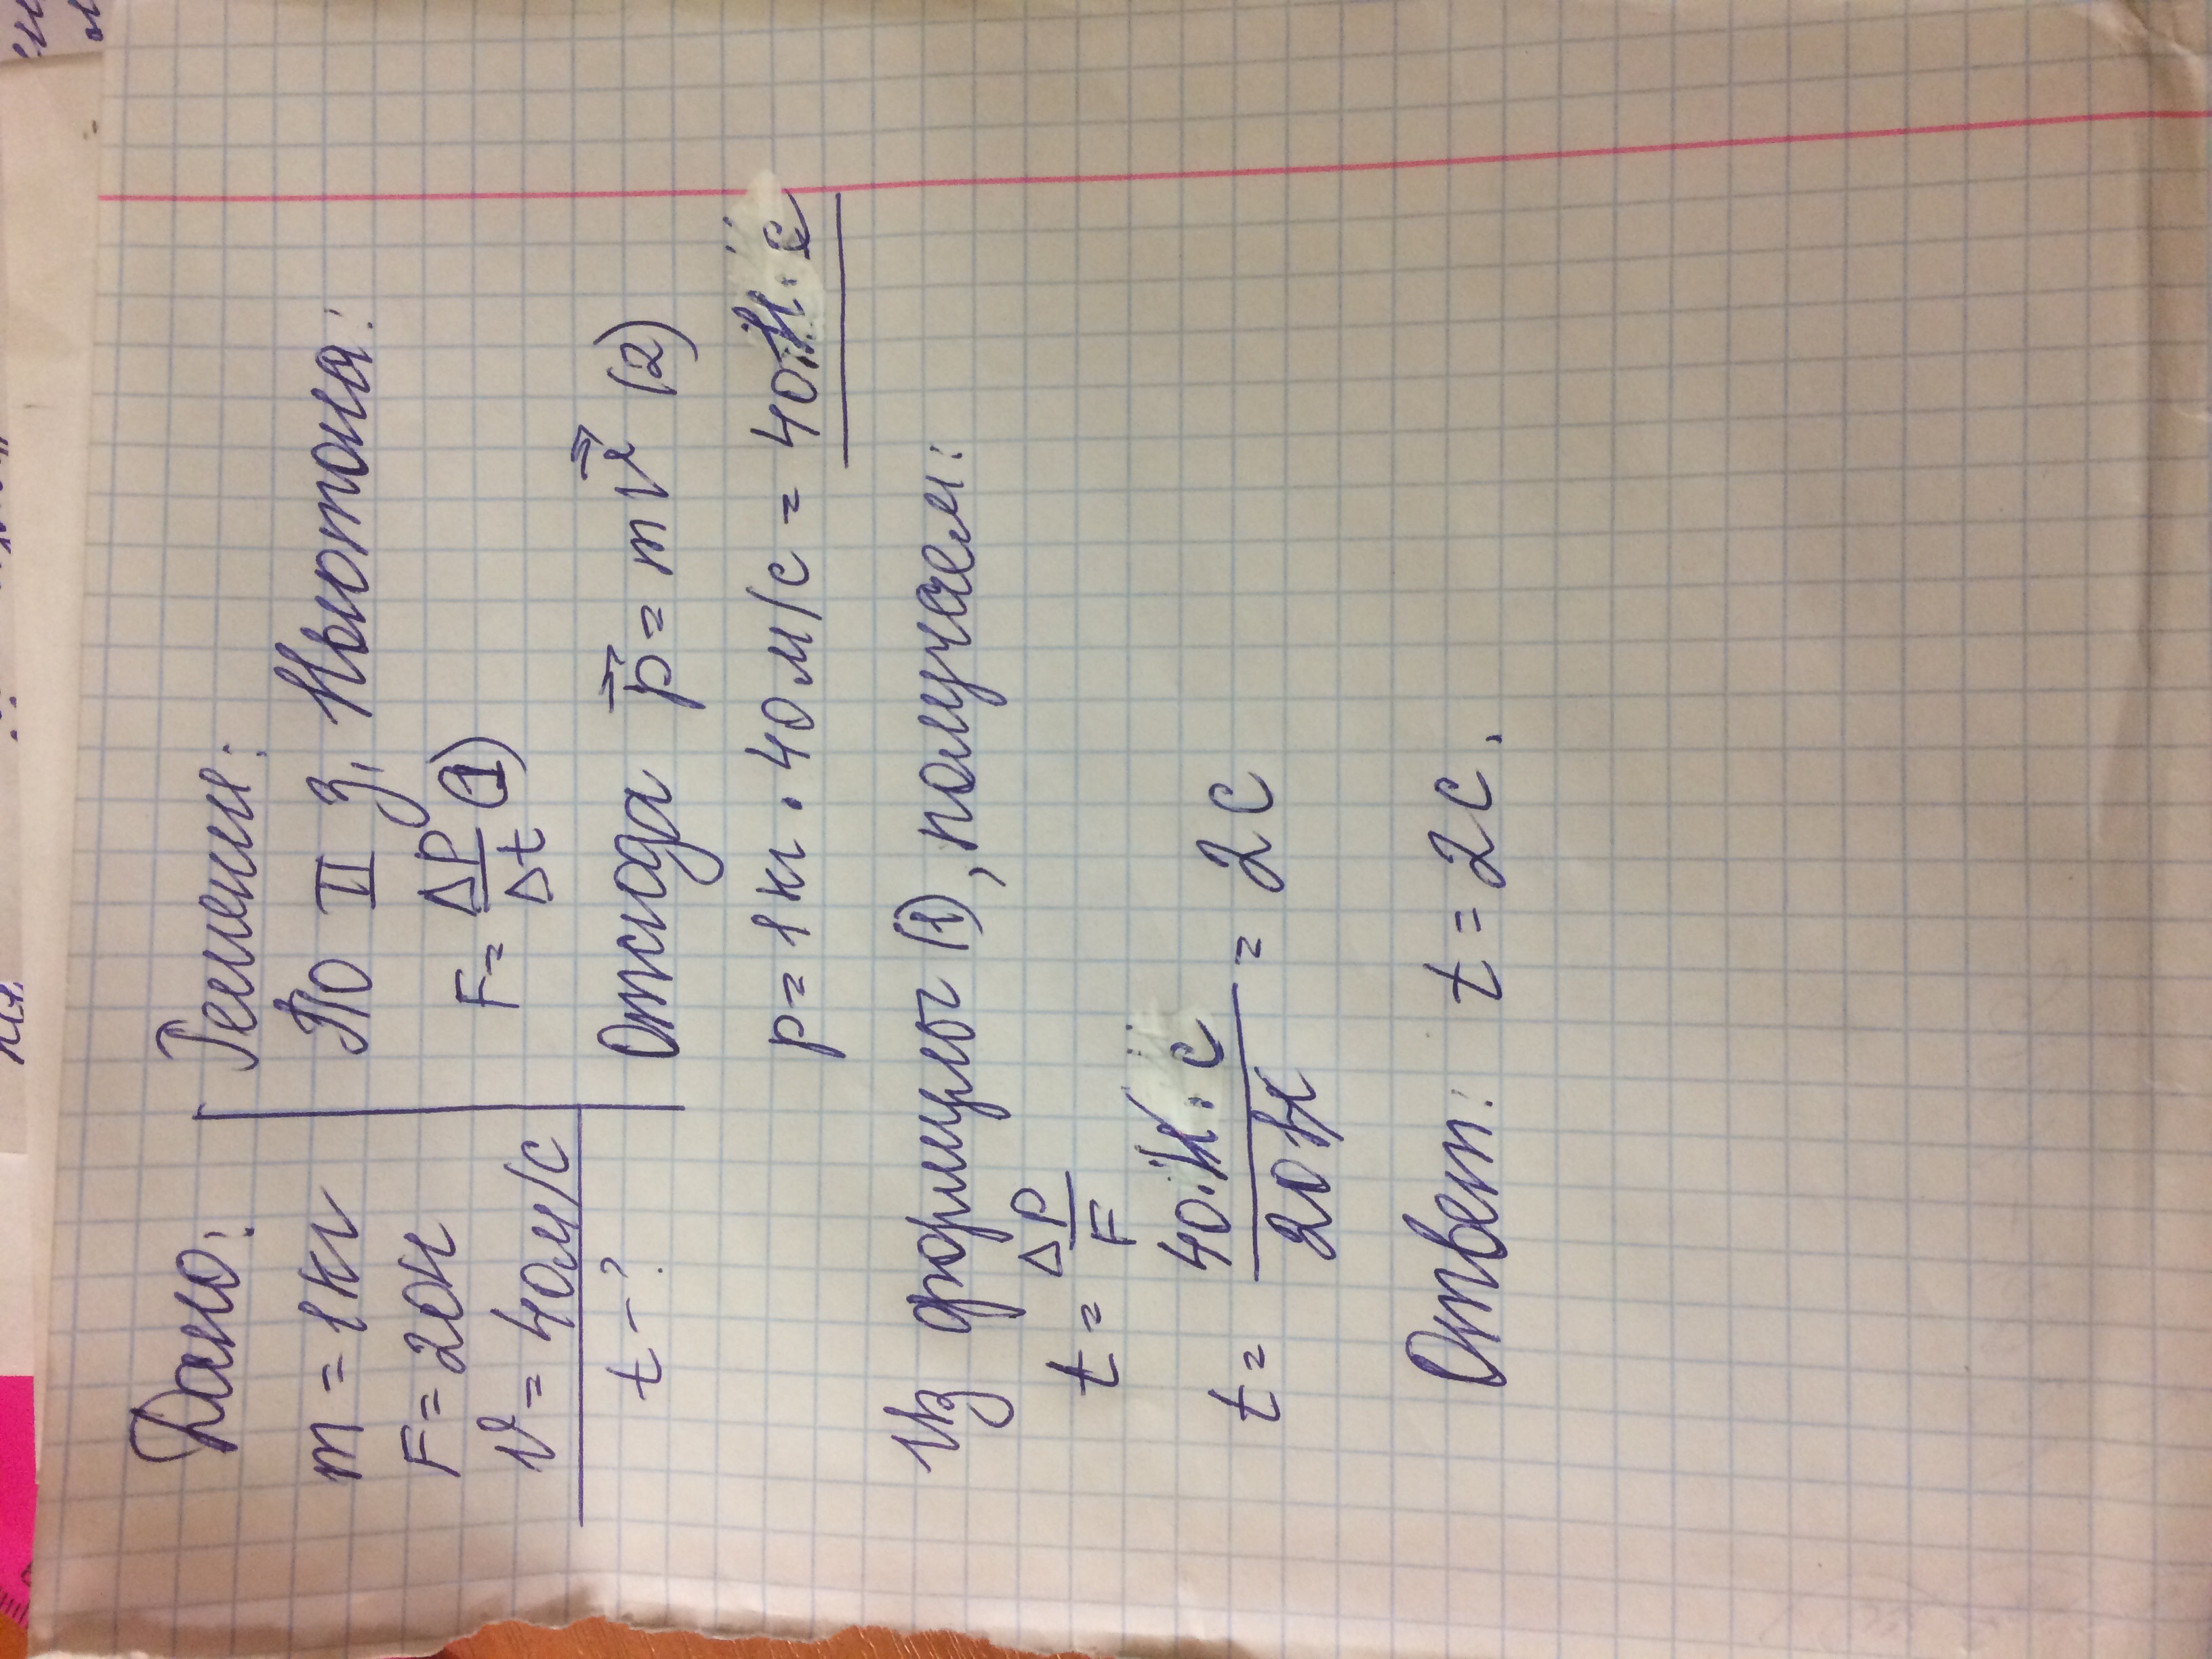 Дано:
m = 1кг
F = 20Н
V = 40м/с
t - ?
Решение:
По II з. Ньютона:
F = ΔP/Δt (1)
Отсюда p⃗ = mV⃗ (2)
p = 1кг · 40м/с = 40Н·с
Из формулы (1), получаем:
t = ΔP/F
t = 40·Н·с/20Н = 2с
Ответ: t = 2с.